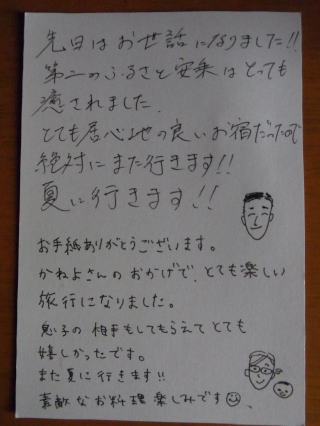 先日はお世話になりました!!
第二のふるさと安乗はとっても
癒されました.
とても居心地の良いお宿だったので
絶対にまた行きます!!
夏に行きます!!
お手紙ありがとうございます。
かねよさんのおかげで、とても楽しい
旅行になりました。
息子の相手もしてもらえてとても
嬉しかったです。
また夏に行きます!!
素敵なお料理楽しみです☺.